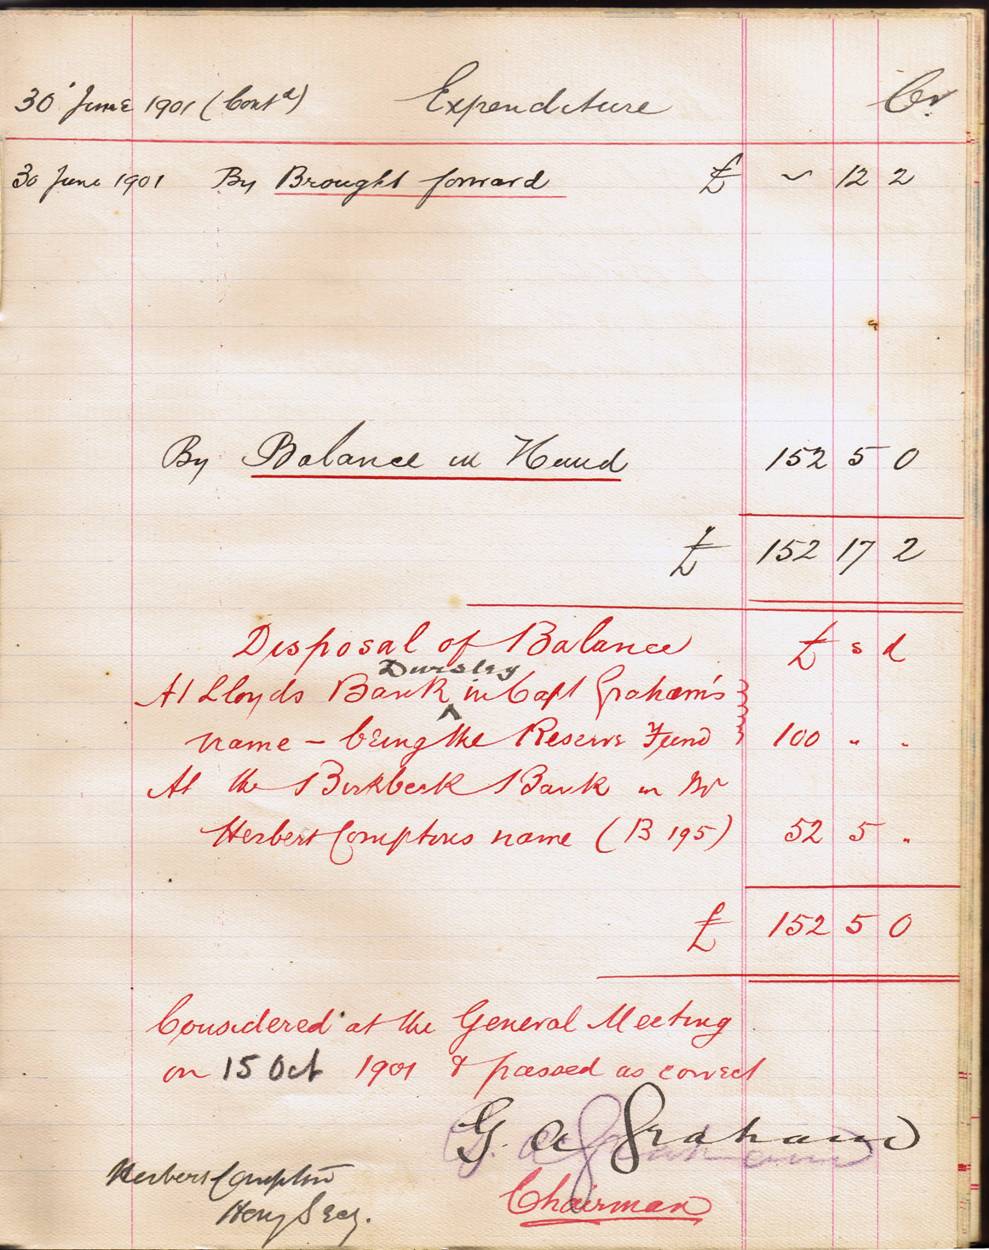 30 June 1901 (Contd) Expenditure Cr.
30 June 1901 By Brought forward £ ~ 12 2
By Balance in Hand 152 5 0
£ 152 17 2
Disposal of Balance £ s d
Dursley
At Lloyds Bank ^ in Capt Graham's
name – being the Reserve Fund 100 " "
At the Birkbeck Bank in Mr
Herbert Comptons name (B 195) 52 5 "
£ 152 5 0
Considered at the General Meeting
on 15 Oct 1901 & passed as correct
G. A. Graham
Chairman
Herbert Compton
Hony Secy.